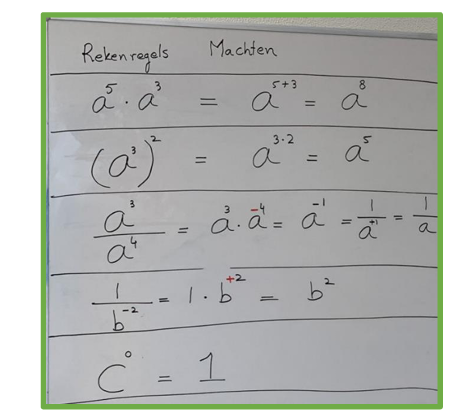 Rekenregels Machten
a⁵ · a³ = a⁵⁺³ = a⁸
(a³)² = a³·² = a⁵
a³/a⁴ = a³ · a⁻⁴ = a⁻¹ = 1/a⁺¹ = 1/a
1/b⁻² = 1 · b⁺² = b²
C⁰ = 1